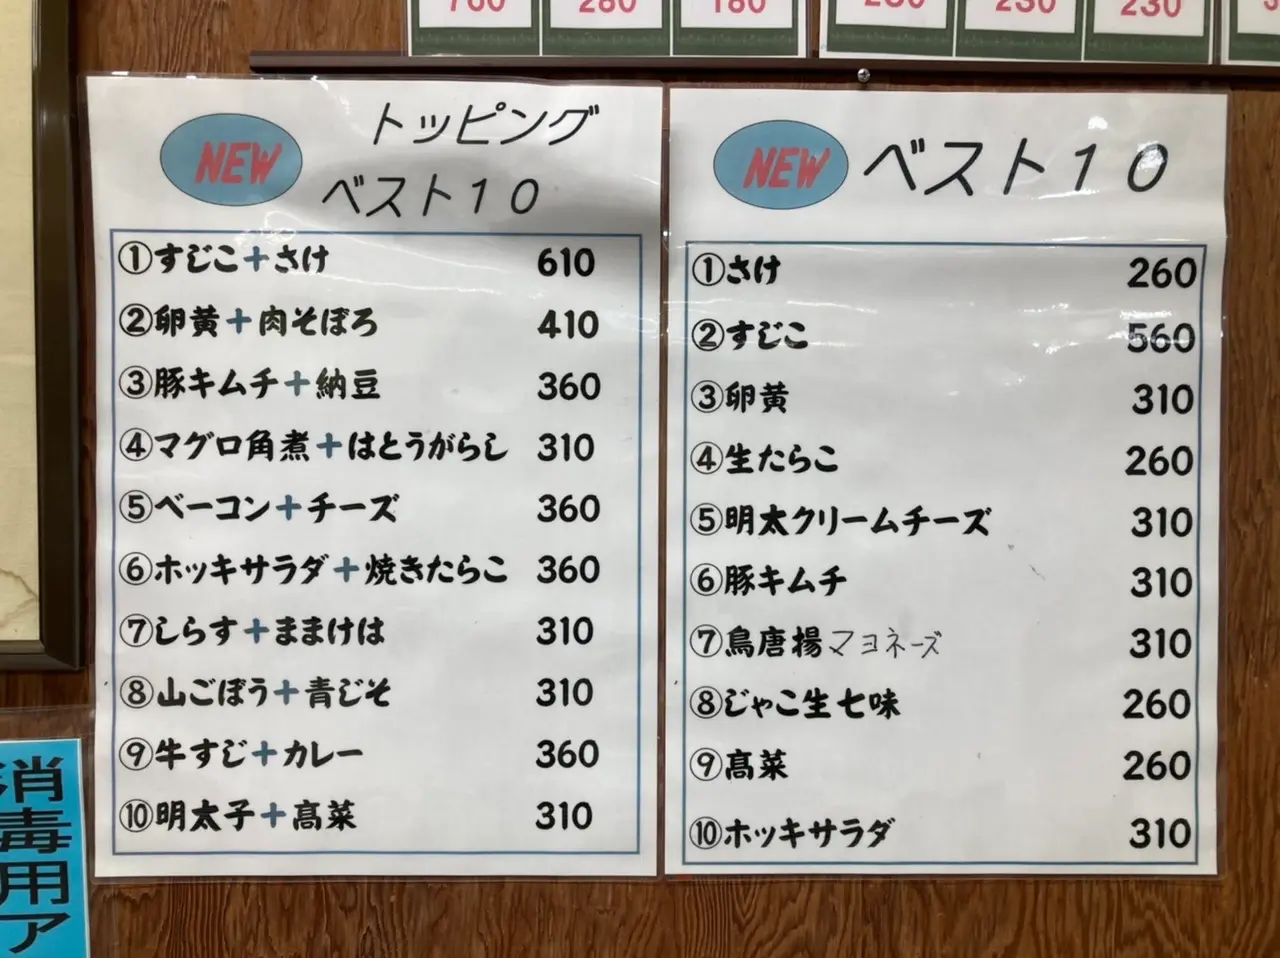 760 280 180 230 230
NEW トッピング
ベスト10
①すじこ+さけ 610
②卵黄+肉そぼろ 410
③豚キムチ+納豆 360
④マグロ角煮+はとうがらし 310
⑤ベーコン+チーズ 360
⑥ホッキサラダ+焼きたらこ 360
⑦しらす+ままけは 310
⑧山ごぼう+青じそ 310
⑨牛すじ+カレー 360
⑩明太子+髙菜 310
NEW ベスト10
①さけ 260
②すじこ 560
③卵黄 310
④生たらこ 260
⑤明太クリームチーズ 310
⑥豚キムチ 310
⑦鳥唐揚マヨネーズ 310
⑧じゃこ生七味 260
⑨髙菜 260
⑩ホッキサラダ 310
消毒用ア